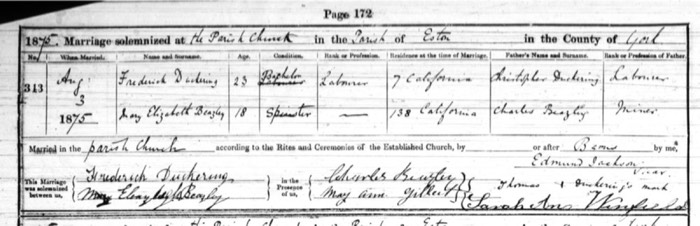 Page 172
1875. Marriage solemnized at the Parish Church in the Parish of Eston in the County of York
No. When Married. Name and Surname. Age. Condition. Rank or Profession. Residence at the time of Marriage. Father's Name and Surname. Rank or Profession of Father.
343 Aug 3 1875
Frederick Duckering 23 Bachelor Labourer 7 California Christopher Duckering Labourer
Mary Elizabeth Beazley 18 Spinster — 138 California Charles Beazley Miner
Married in the parish Church according to the Rites and Ceremonies of the Established Church, by or after Banns by me,
Edmund Jackson
Vicar.
This Marriage was solemnized between us, Frederick Duckering in the Presence of us, Charles Beazley Thomas + Duckering's mark
Beazley Mary Ann Gilbert Sarah Ann Wingfield